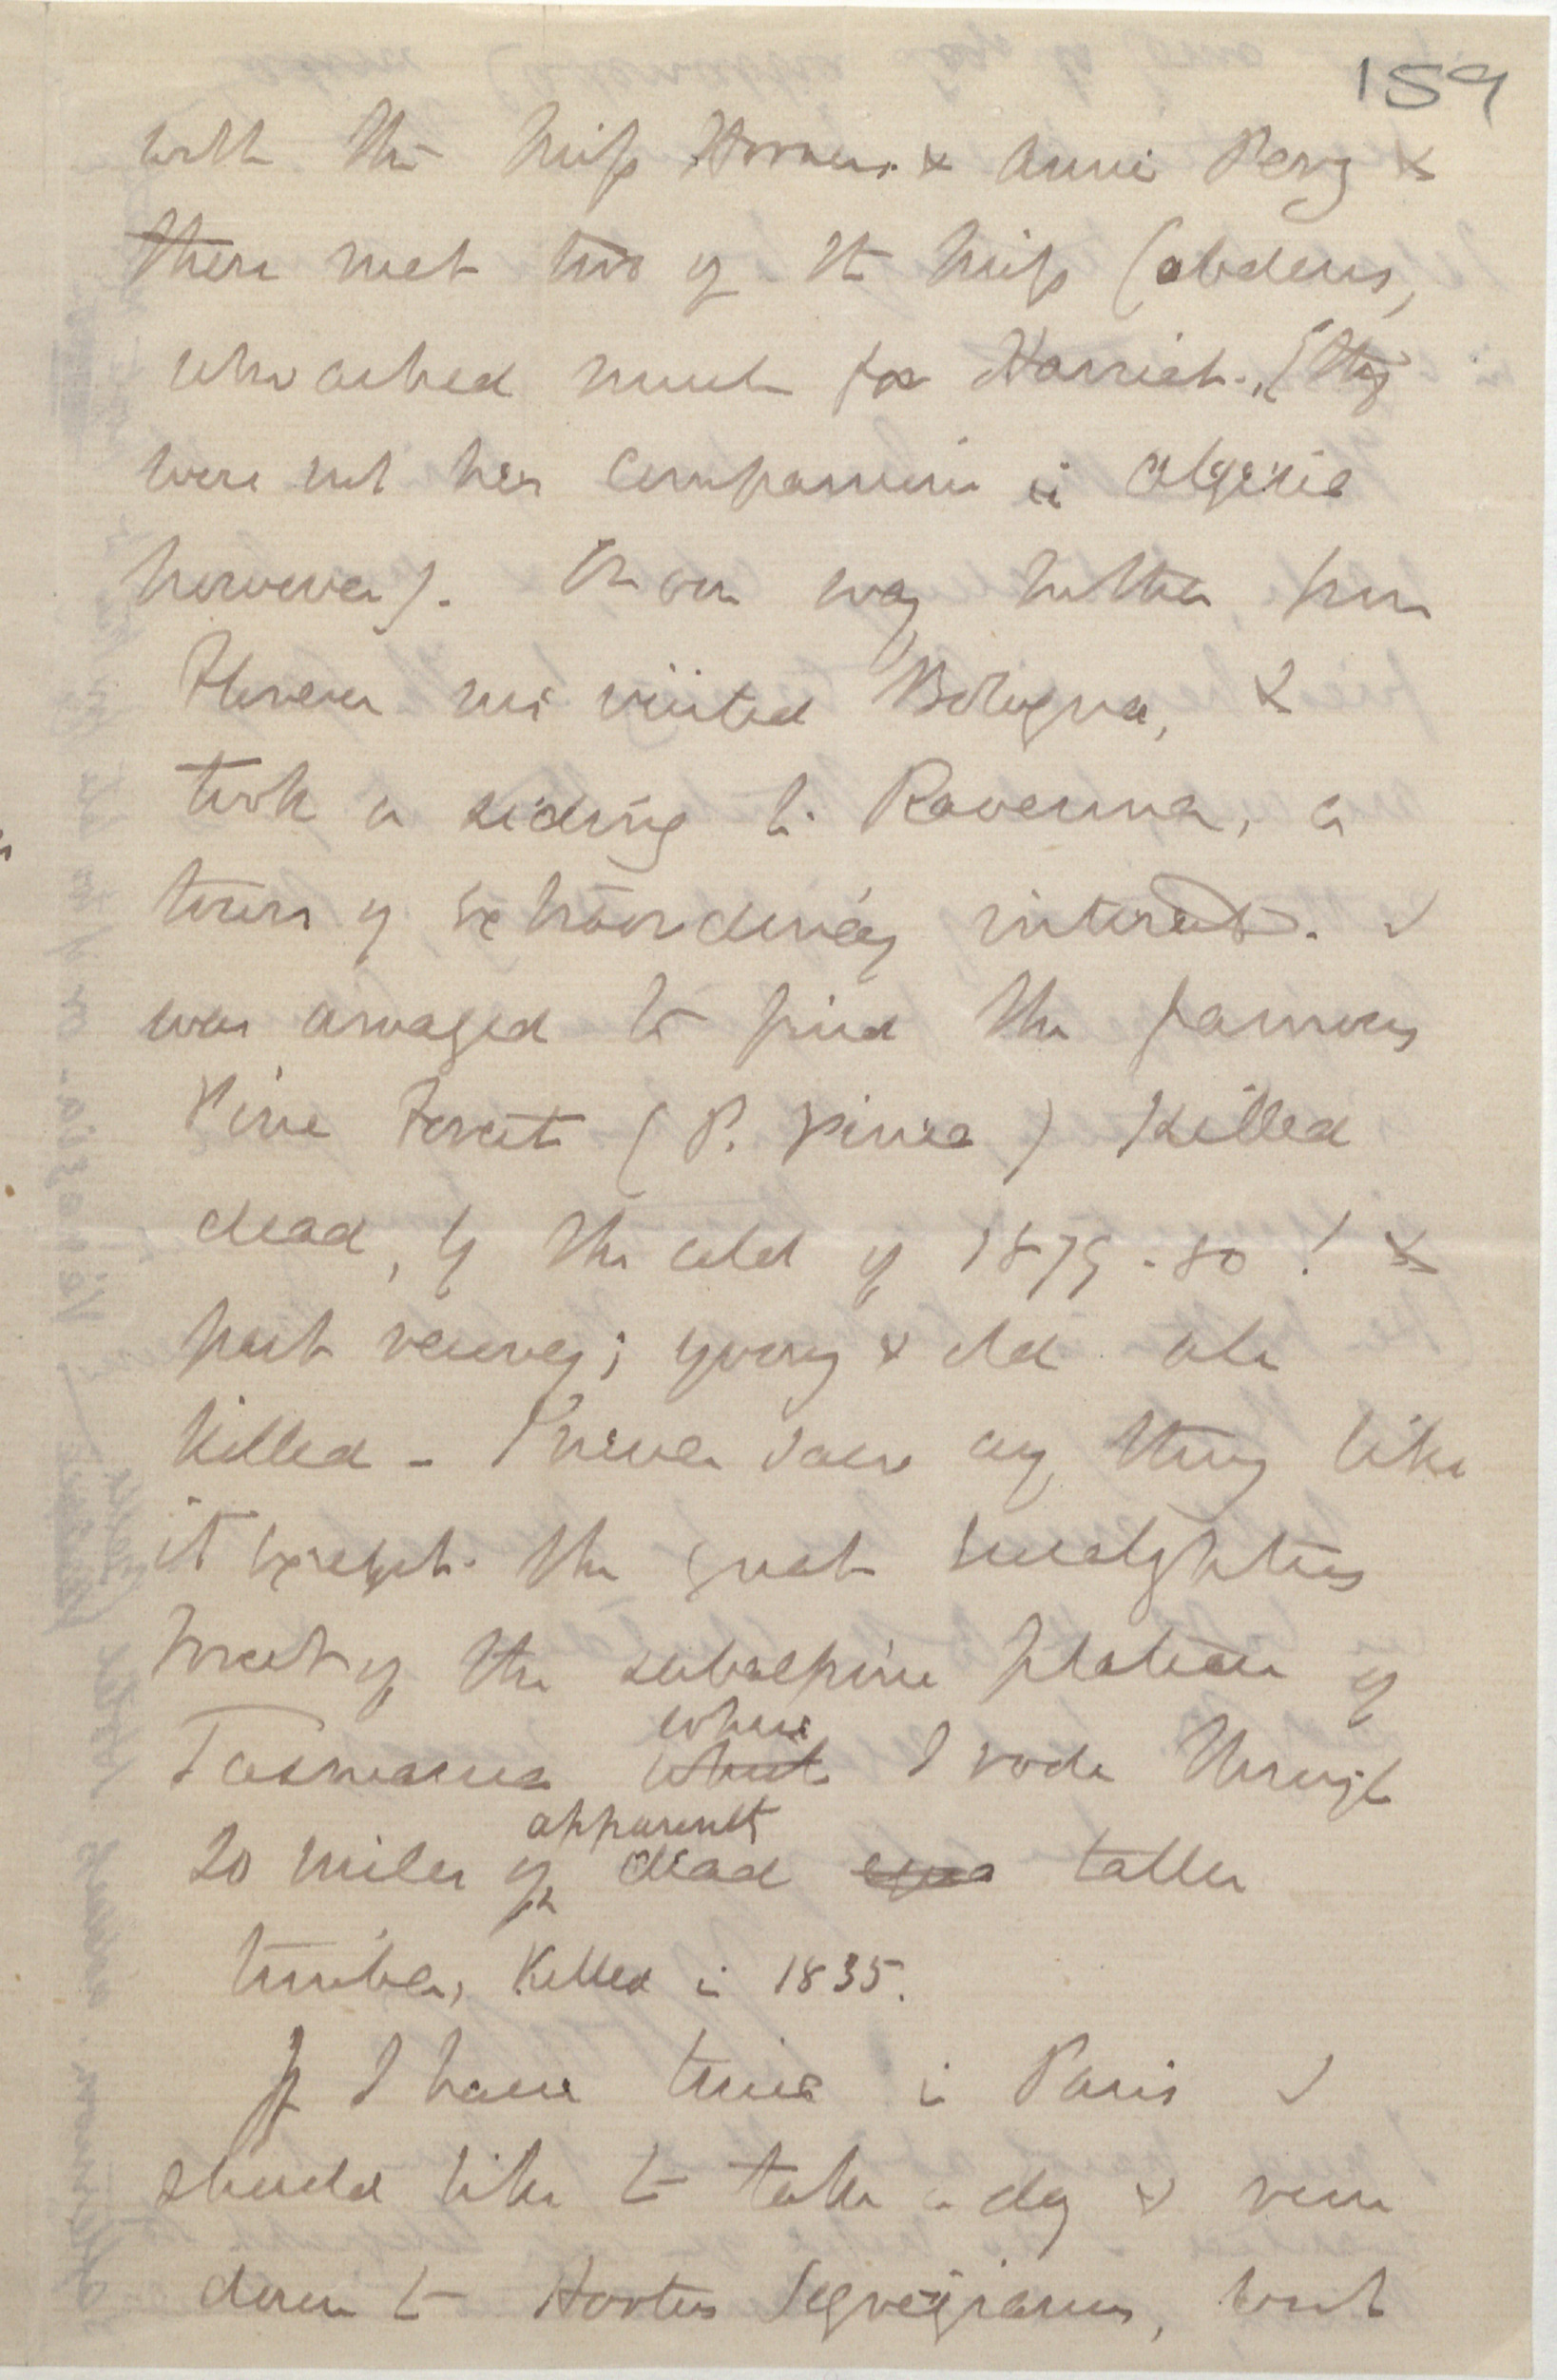 159
with the Miss Horners & Annie Perry &
there met two of the Miss Cobdens,
who asked much for Harriet. (They
were not her companions in Algeria
however). On our way hither, from
Florence we visited Bologna, &
took a siding to Ravenna, a
town of extraordinary interest. I
was amazed to find the famous
Pine Forest (P. pinea) killed
dead, by the cold of 1879-80! &
past recovery; young & old all
killed — I never saw any thing like
it except the great Eucalyptus
Forest of the subalpine plateau of
Tasmania where I rode through
20 miles of apparently dead taller
timber, killed in 1835.
If I have time in Paris I
should like to take a day & run
down to Hortus Segrezianus, but